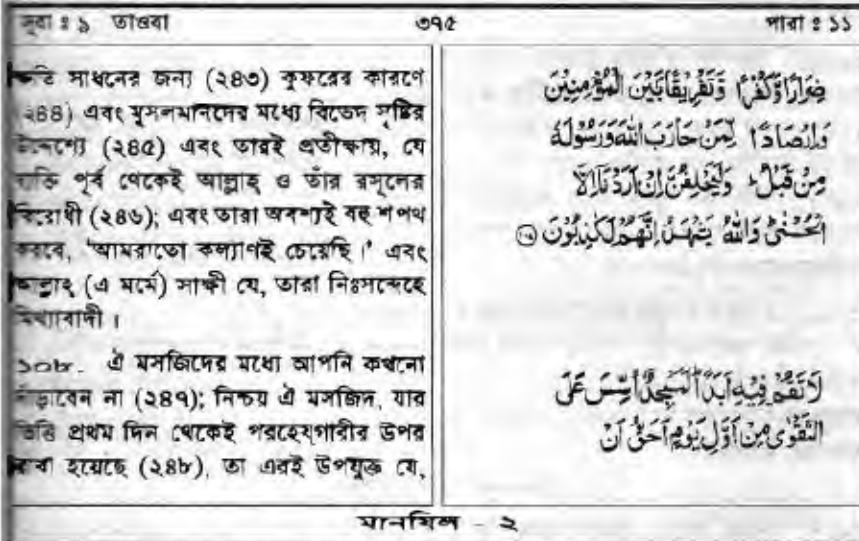 সূরা ঃ ৯ তাওবা ৩৭৫ পারা ঃ ১১
ক্ষতি সাধনের জন্য (২৪৩) কুফরের কারণে
(২৪৪) এবং মুসলমানদের মধ্যে বিভেদ সৃষ্টির
উদ্দেশ্যে (২৪৫) এবং তারই প্রতীক্ষায়, যে
ব্যক্তি পূর্ব থেকেই আল্লাহ্ ও তাঁর রসূলের
বিরোধী (২৪৬); এবং তারা অবশ্যই বহু শপথ
করবে, 'আমরাতো কল্যাণই চেয়েছি।' এবং
আল্লাহ্ (এ মর্মে) সাক্ষী যে, তারা নিঃসন্দেহে
মিথ্যাবাদী।
১০৮. ঐ মসজিদের মধ্যে আপনি কখনো
দাঁড়াবেন না (২৪৭); নিশ্চয় ঐ মসজিদ, যার
ভিত্তি প্রথম দিন থেকেই পরহেয্গারীর উপর
রাখা হয়েছে (২৪৮), তা এরই উপযুক্ত যে,
ضِرَارًا وَّكُفْرًا وَّتَفْرِيْقًا بَيْنَ الْمُؤْمِنِيْنَ
وَاِرْصَادًا لِّمَنْ حَارَبَ اللّٰهَ وَرَسُوْلَهٗ
مِنْ قَبْلُ ؕ وَلَيَحْلِفُنَّ اِنْ اَرَدْنَاۤ اِلَّا
الْحُسْنٰى ؕ وَاللّٰهُ يَشْهَدُ اِنَّهُمْ لَكٰذِبُوْنَ ﴿۱۰۷﴾
لَا تَقُمْ فِيْهِ اَبَدًا ؕ لَمَسْجِدٌ اُسِّسَ عَلَى
التَّقْوٰى مِنْ اَوَّلِ يَوْمٍ اَحَقُّ اَنْ
মানযিল - ২